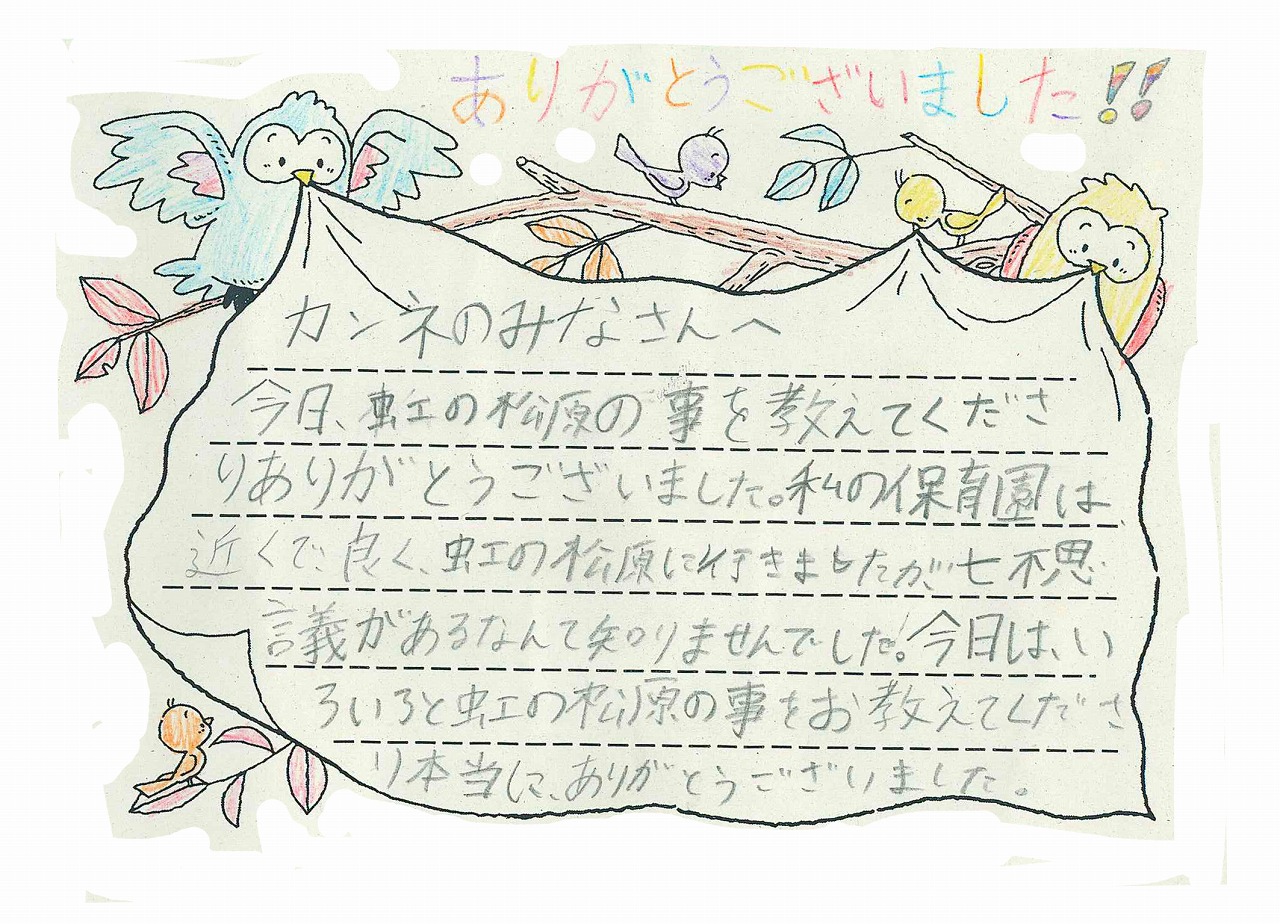 ありがとうございました!!
カンネのみなさんへ
今日、虹の松原の事を教えてくださ
りありがとうございました。私の保育園は
近くで、良く、虹の松原に行きましたが七不思
議があるなんて知りませんでした。今日は、い
ろいろと虹の松原の事をお教えてくださ
り本当に、ありがとうございました。